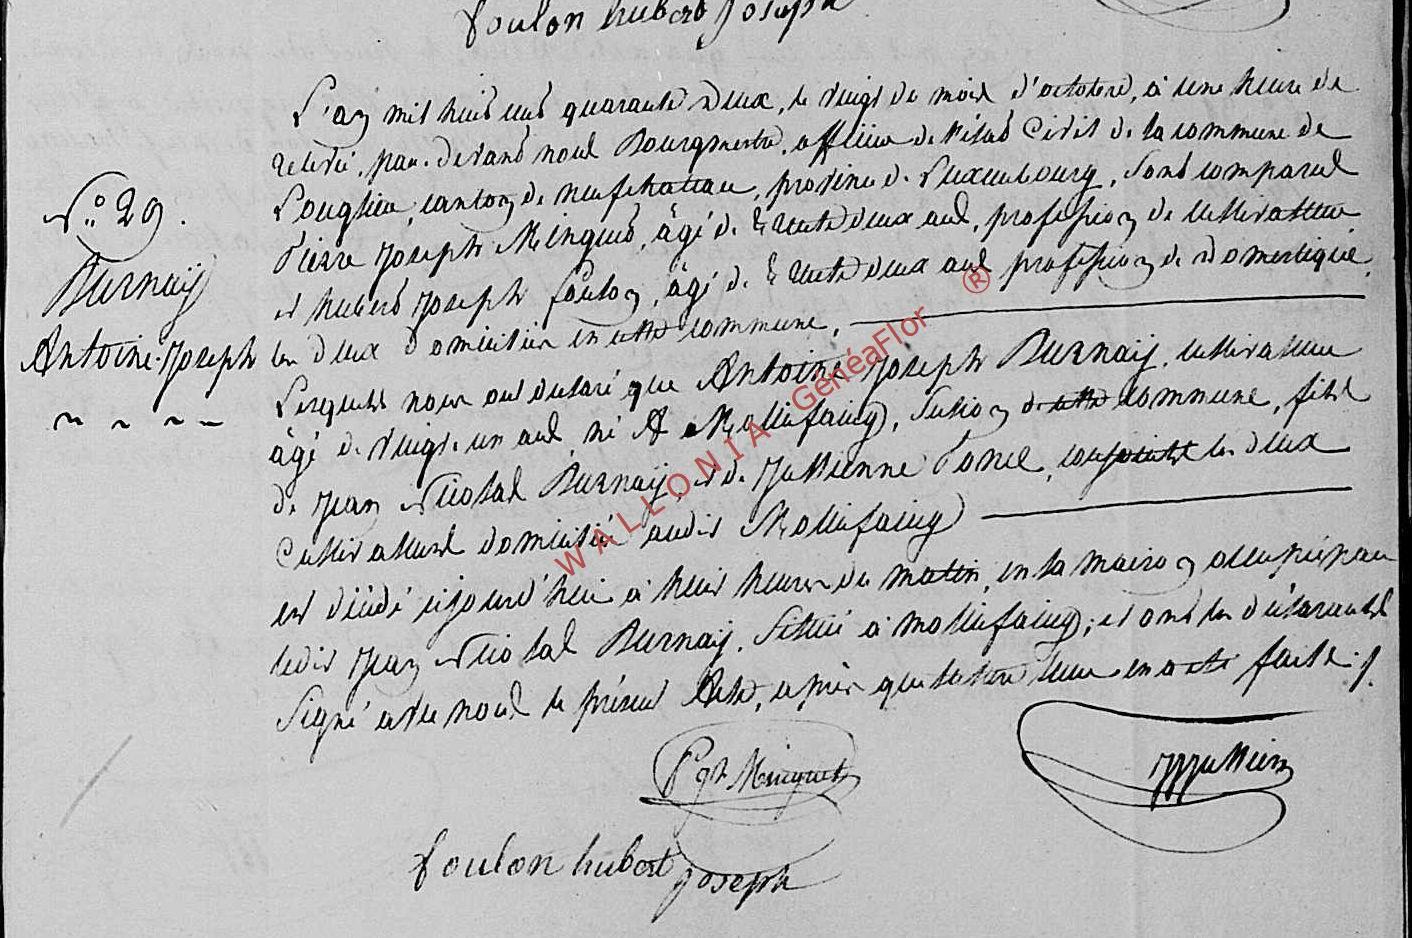 foulon hubert Joseph
L'an mil huit cent quarante deux, le vingt du mois d'octobre, à une heure de
relevé, par devant nous Bourgmestre, officier de l'état Civil de la commune de
Longlier, canton de neufchateau, province de Luxembourg, sont comparus
N.º 29.
Pierre Joseph Minguet, âgé de trente deux ans, profession de cultivateur
Burnaÿ
et hubert Joseph foulon, âgé de trente deux ans profession de Domestique,
Antoine-Joseph
les deux domiciliés en cette commune,
Lesquels nous ont déclaré que Antoine Joseph Burnaÿ, cultivateur
âgé de vingt-un ans né à Mollifaing, section de cette commune, fils
de Jean Nicolas Burnaÿ, et de Julienne Ponce, conjoints les deux
Cultivateurs domiciliés audit Mollifaing
est décédé cejourd'hui à huit heures du matin, en la maison occupée par
ledit Jean Nicolas Burnaÿ, située à mollifaing; et ont les déclarants
signé avec nous le présent Acte, après que lecture leur en a été faite ./.
P Jph Minguet
foulon hubert Joseph
WALLONIA - GénéaFlor ®